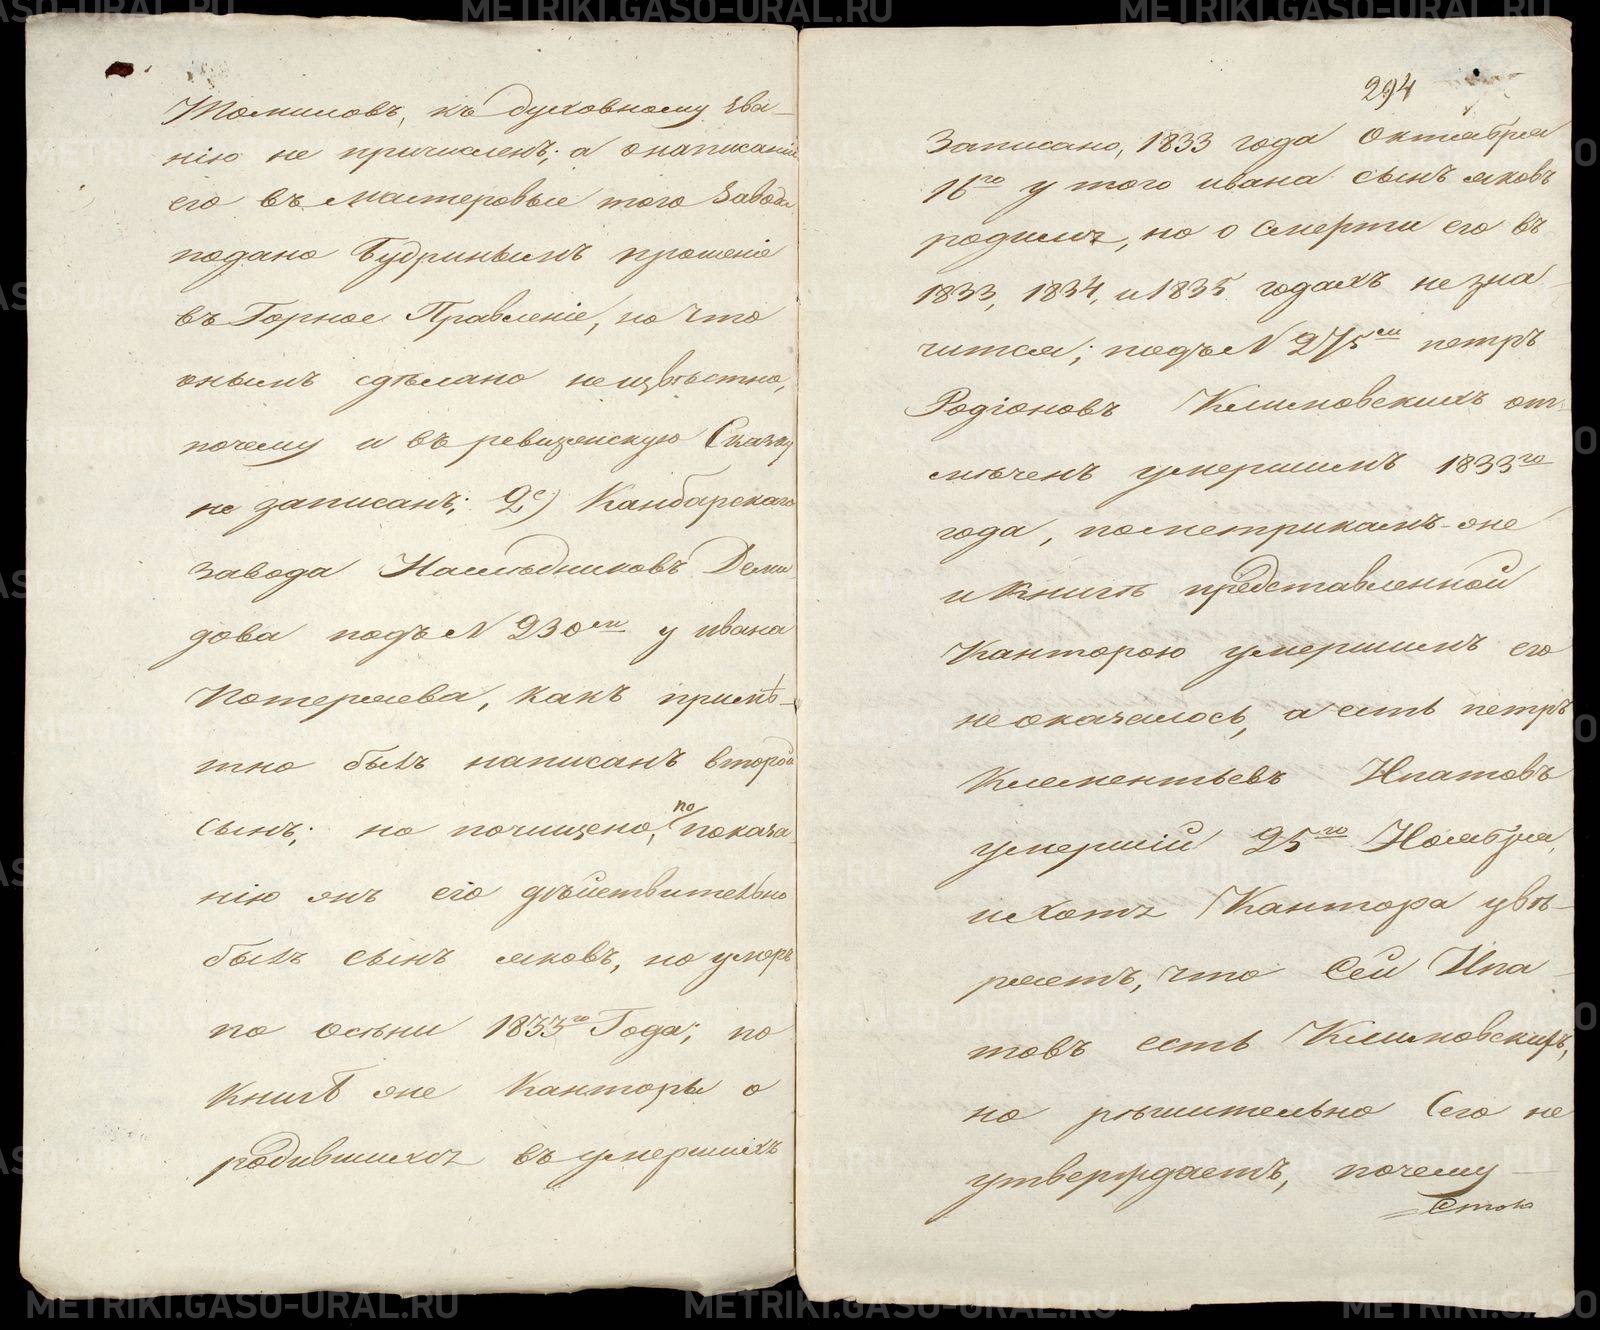 Томиловъ, къ духовному зва-
нію не причисленъ; а онаписаніи
его въ мастеровые того завода
подано Будринымъ прошеніе
въ Горное Правленіе, но что
онымъ сдѣлано неизвѣстно,
почему и въ ревизскую Сказку
не записанъ; 2е) Канбарскаго
завода Наслѣдниковъ Деми-
дова подъ N 230ми у ивана
Потеряева, какъ примѣ-
тно былъ написанъ второй
сынъ; но почищено, по показа-
нію янъ его дѣйствительно
былъ сынъ яковъ, но умеръ
по осѣни 1833го Года; по
Книгѣ же Канторы о
родившихся въ умершихъ
294
Записано, 1833 года Октября
16го у того ивана сынъ яковъ
родился, но о смерти его въ
1833, 1834, и 1835 годахъ не зна-
чится; подъ N 275ми петръ
Родіоновъ Климовскихъ от-
мѣченъ умершимъ 1833го
года, пометрикамъ же
и Книгѣ представленной
Канторою умершимъ его
не оказалось, а есть петръ
Клементьевъ Ипатовъ
умершій 25го Ноября,
и хотя Кантора увѣ-
ряетъ, что Сей Ипа-
товъ есть Климовскихъ,
но рѣшительно Сего не
утверждаетъ, почему
METRIKI.GASO-URAL.RU